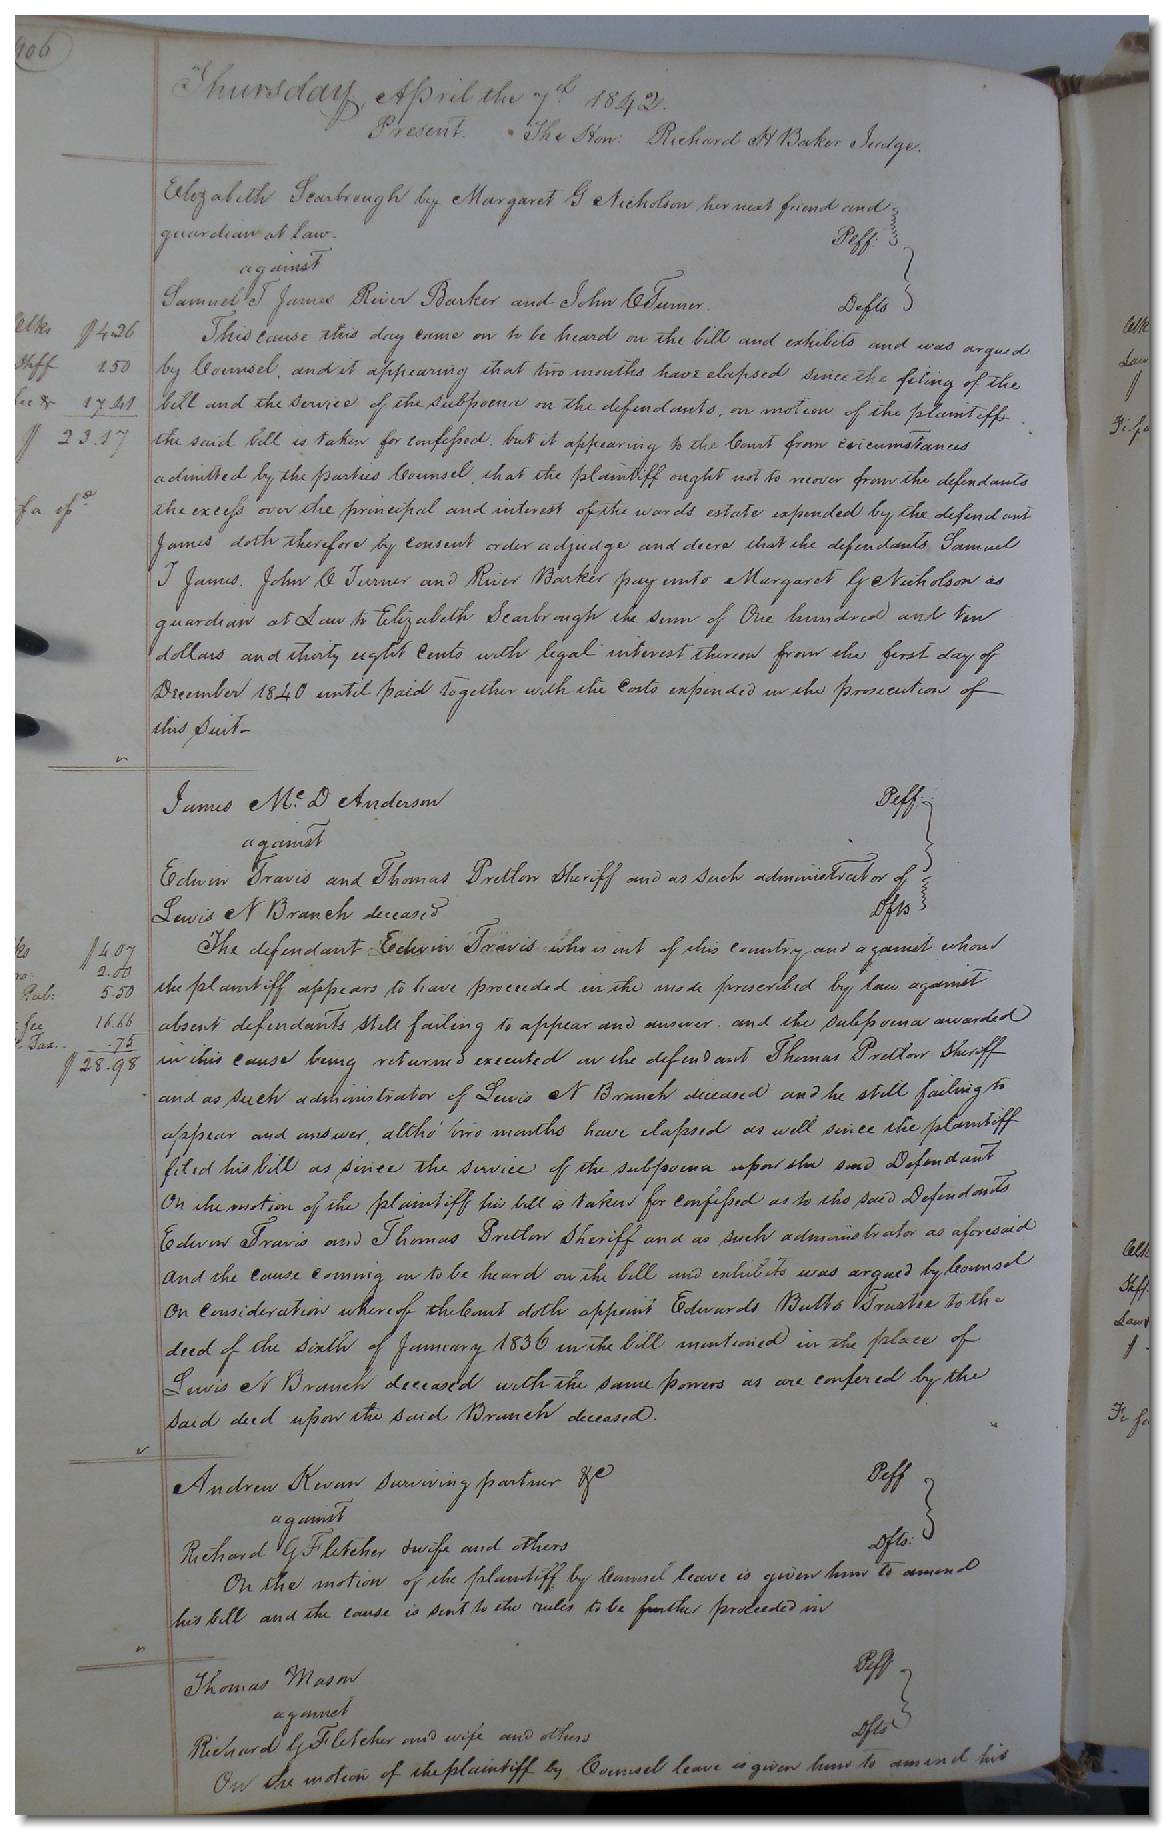 106
Thursday, April the 7th 1842.
Present. The Hon: Richard H Baker Judge.
Elizabeth Scarbrough by Margaret G Nicholson her next friend and
guardian at law. Plff:
against
Samuel T James River Barker and John C Turner. Defts
This cause this day came on to be heard on the bill and exhibits and was argued
by Counsel, and it appearing that two months have elapsed since the filing of the
bill and the service of the subpoena on the defendants, on motion of the plaintiff
the said bill is taken for confessed. but it appearing to the Court from circumstances
admitted by the parties Counsel, that the plaintiff ought not to recover from the defendants
the excess over the principal and interest of the wards estate expended by the defendant
James doth therefore by consent order adjudge and decree that the defendants Samuel
T James. John C Turner and River Barker pay unto Margaret G Nicholson as
guardian at Law to Elizabeth Scarbrough the sum of One hundred and ten
dollars and thirty eight Cents with legal interest thereon from the first day of
December 1840 until paid together with the Costs expended in the prosecution of
this suit-
Clks $4.26
Shff 1.50
fee & 17.41
$ 23.17
fa
James Mc. D Anderson Plff.
against
Edwin Travis and Thomas Pretlow Sheriff and as such administrator of
Lewis N Branch deceased Dfts
The defendant Edwin Travis who is out of this country and against whom
the plaintiff appears to have proceeded in the mode prescribed by law against
absent defendants still failing to appear and answer. and the subpoena awarded
in this cause being returned executed on the defendant Thomas Pretlow Sheriff
and as such administrator of Lewis N Branch deceased and he still failing to
appear and answer, altho' two months have elapsed as well since the plaintiff
filed his bill as since the service of the subpoena upon the said Defendant
On the motion of the plaintiff his bill is taken for confessed as to the said Defendants
Edwin Travis and Thomas Pretlow Sheriff and as such administrator as aforesaid
And the cause coming on to be heard on the bill and exhibits was argued by Counsel
On Consideration whereof the Court doth appoint Edwards Butts Trustee to the
deed of the sixth of January 1836 in the bill mentioned in the place of
Lewis N Branch deceased with the same powers as are confered by the
said deed upon the said Branch deceased.
ks $4.07
2.00
Pub: 5.50
fee 16.66
Tax. .75
$ 28.98
Andrew Kevan surviving partner &c Plff
against
Richard G Fletcher & wife and others Dfts:
On the motion of the plaintiff by Counsel leave is given him to amend
his bill and the cause is sent to the rules to be further proceeded in
Thomas Mason Plff
against
Richard G Fletcher and wife and others Dfts
On the motion of the plaintiff by Counsel leave is given him to amend his
Clk
Law
Fi. fa
Clk
Shff.
Law
Fi fa